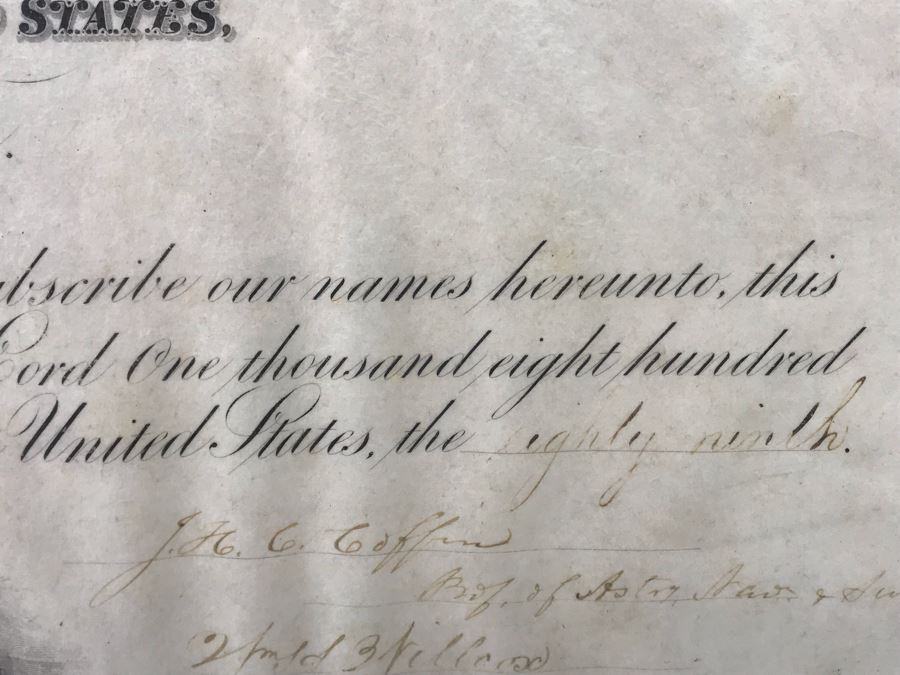 STATES,
ubscribe our names hereunto, this
Lord One thousand eight hundred
United States, the eighty ninth.
J. H. C. Coffin
Prof. of Astr, Nav. & Su
Willcox